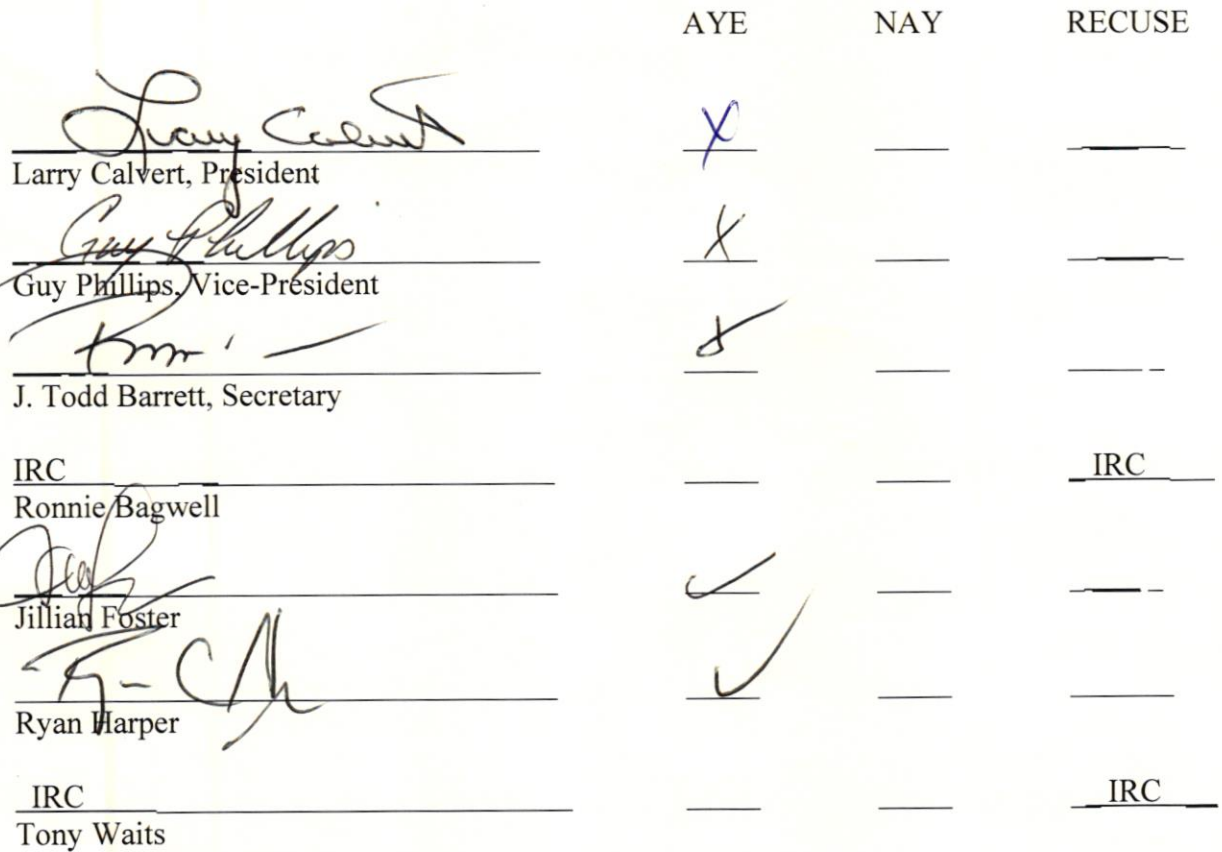 AYE NAY RECUSE
Larry Calvert X
Larry Calvert, President
Guy Phillips X
Guy Phillips, Vice-President
J. Todd Barrett, Secretary
IRC IRC
Ronnie Bagwell
✓
Jillian Foster
✓
Ryan Harper
IRC IRC
Tony Waits